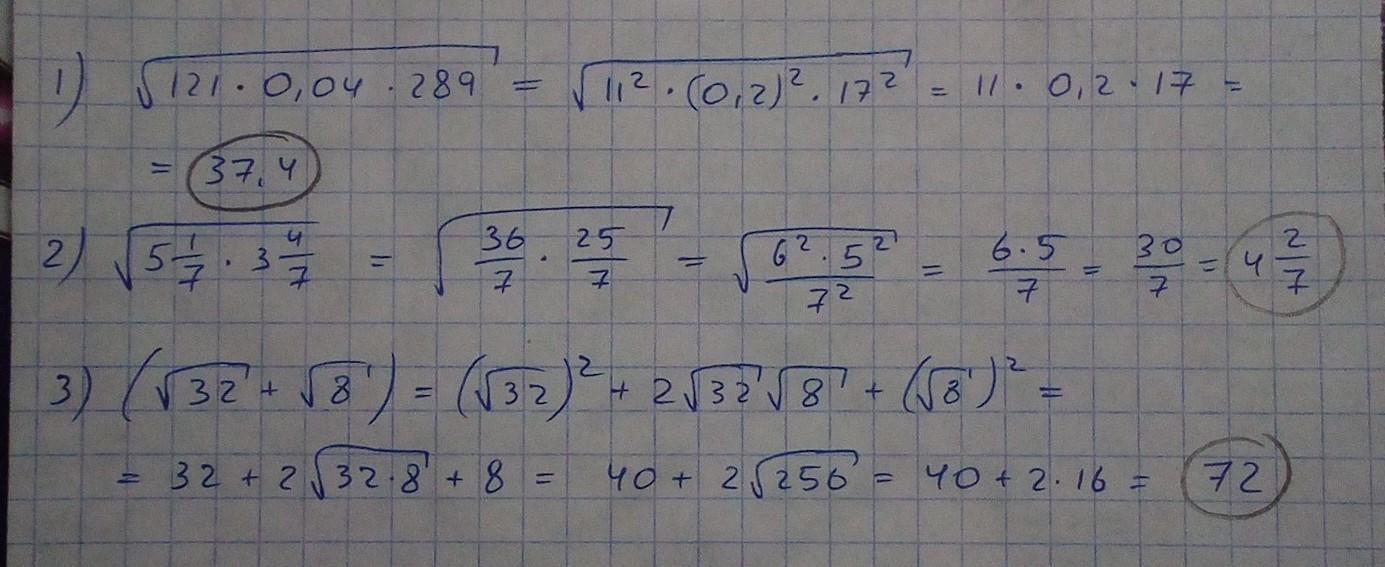 1) √(121 · 0,04 · 289) = √(11² · (0,2)² · 17²) = 11 · 0,2 · 17 =
= 37,4
2) √(5 1/7 · 3 4/7) = √(36/7 · 25/7) = √(6² · 5² / 7²) = 6·5/7 = 30/7 = 4 2/7
3) (√32 + √8) = (√32)² + 2√32 √8 + (√8)² =
= 32 + 2√(32·8) + 8 = 40 + 2√256 = 40 + 2·16 = 72